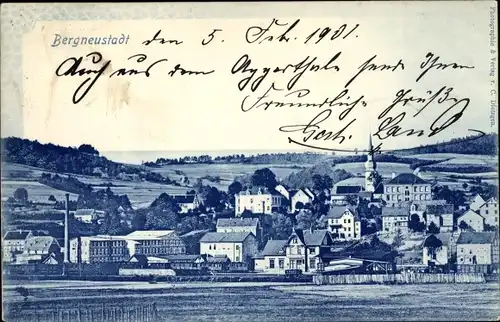 Bergneustadt
den 5. Feb. 1901.
Auch aus dem Aggerthale sende Ihnen
Freundliche Grüße
Gust.
Photographie & Verlag v. C.